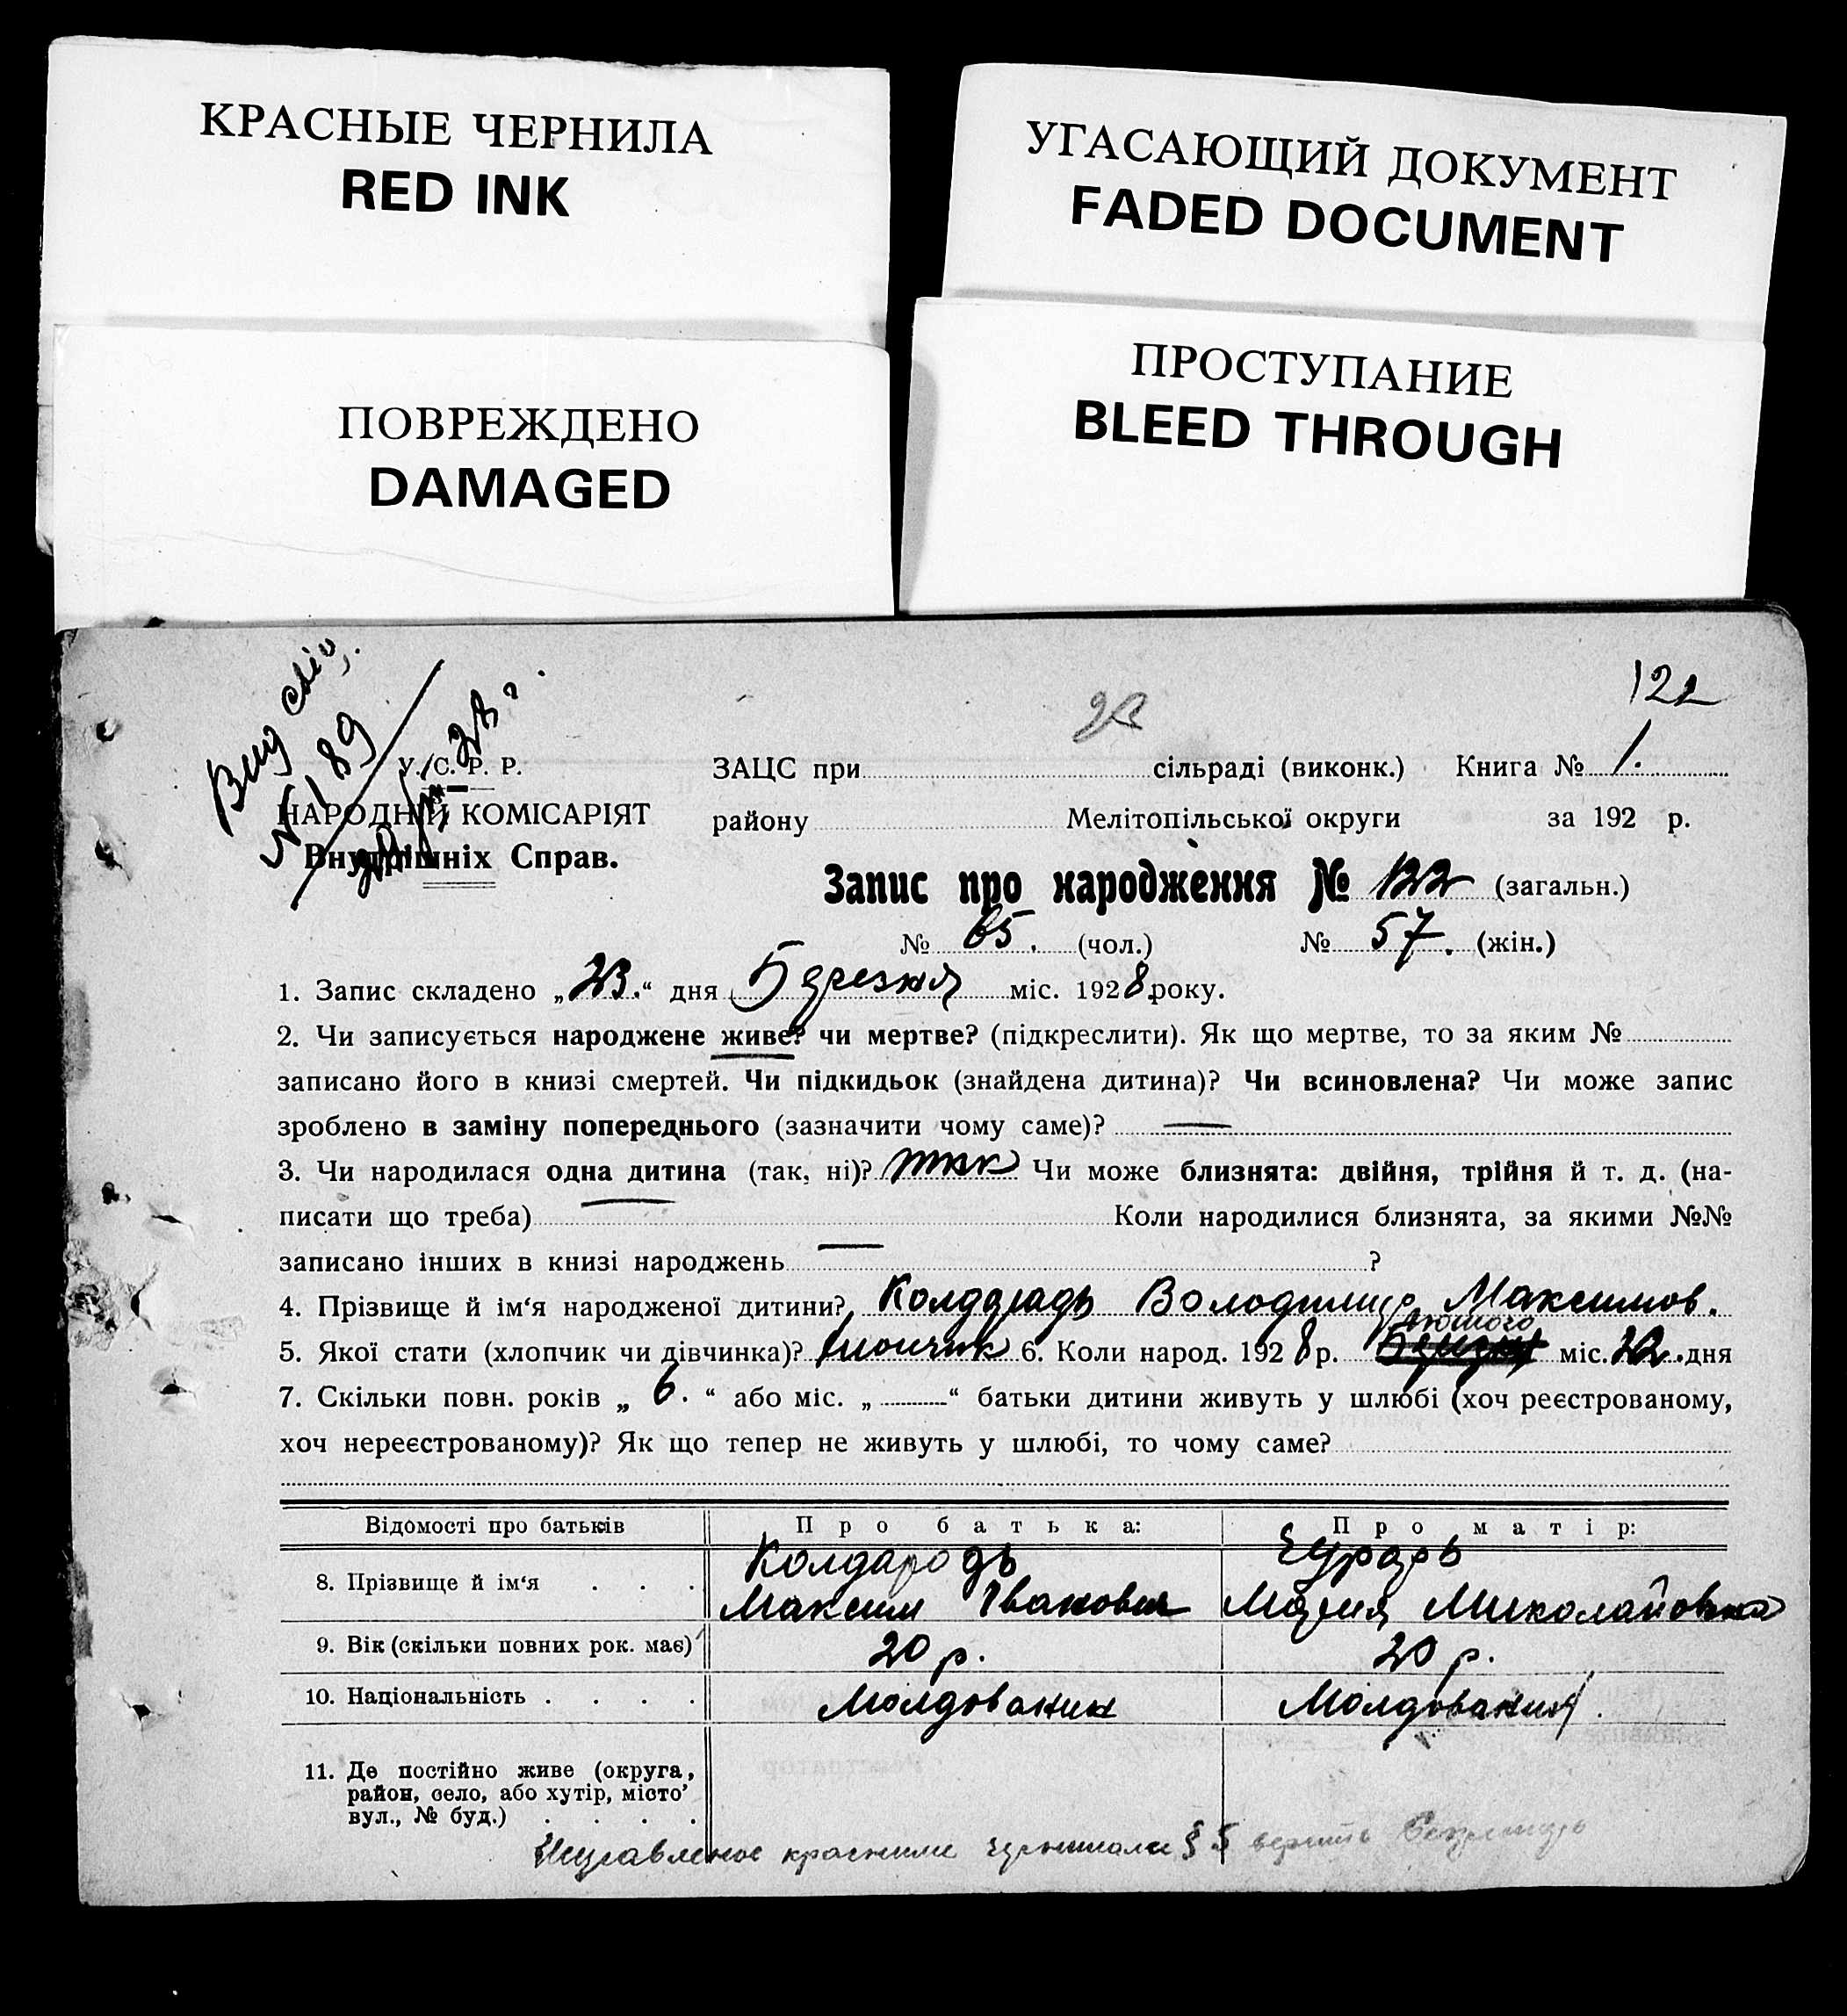 КРАСНЫЕ ЧЕРНИЛА
RED INK
УГАСАЮЩИЙ ДОКУМЕНТ
FADED DOCUMENT
ПОВРЕЖДЕНО
DAMAGED
ПРОСТУПАНИЕ
BLEED THROUGH
122
Вид свід.
№ 189
У. С. Р. Р.
НАРОДНІЙ КОМІСАРІЯТ
Внутрішніх Справ.
ЗАЦС при сільраді (виконк.) Книга № 1.
району Мелітопільської округи за 192 р.
Запис про народження № 122 (загальн.)
№ 65. (чол.) № 57. (жін.)
1. Запис складено „23.“ дня Березня міс. 1928 року.
2. Чи записується народжене живе? чи мертве? (підкреслити). Як що мертве, то за яким №
записано його в книзі смертей. Чи підкидьок (знайдена дитина)? Чи всиновлена? Чи може запис
зроблено в заміну попереднього (зазначити чому саме)? —
3. Чи народилася одна дитина (так, ні)? так Чи може близнята: двійня, трійня й т. д. (на-
писати що треба) — Коли народилися близнята, за якими №№
записано інших в книзі народжень — ?
4. Прізвище й ім‘я народженої дитини? Володимир Максимов.
лютого
5. Якої стати (хлопчик чи дівчинка)? хлопчик 6. Коли народ. 1928 р. Березня міс. 22. дня
7. Скільки повн. років „ 6. “ або міс. „ “ батьки дитини живуть у шлюбі (хоч реєстрованому,
хоч нереєстрованому)? Як що тепер не живуть у шлюбі, то чому саме?
Відомості про батьків Про батька: Про матір:
8. Прізвище й ім‘я . . .
Колдародь
Максим Іванович
Марія Миколаївна
9. Вік (скільки повних рок. має) 20 р. 20 р.
10. Національність . . . . Молдованин Молдования.
11. Де постійно живе (округа,
район, село, або хутір, місто
вул., № буд.) . . . .
Исправленое красными чернилами § 5 верить Секретарь